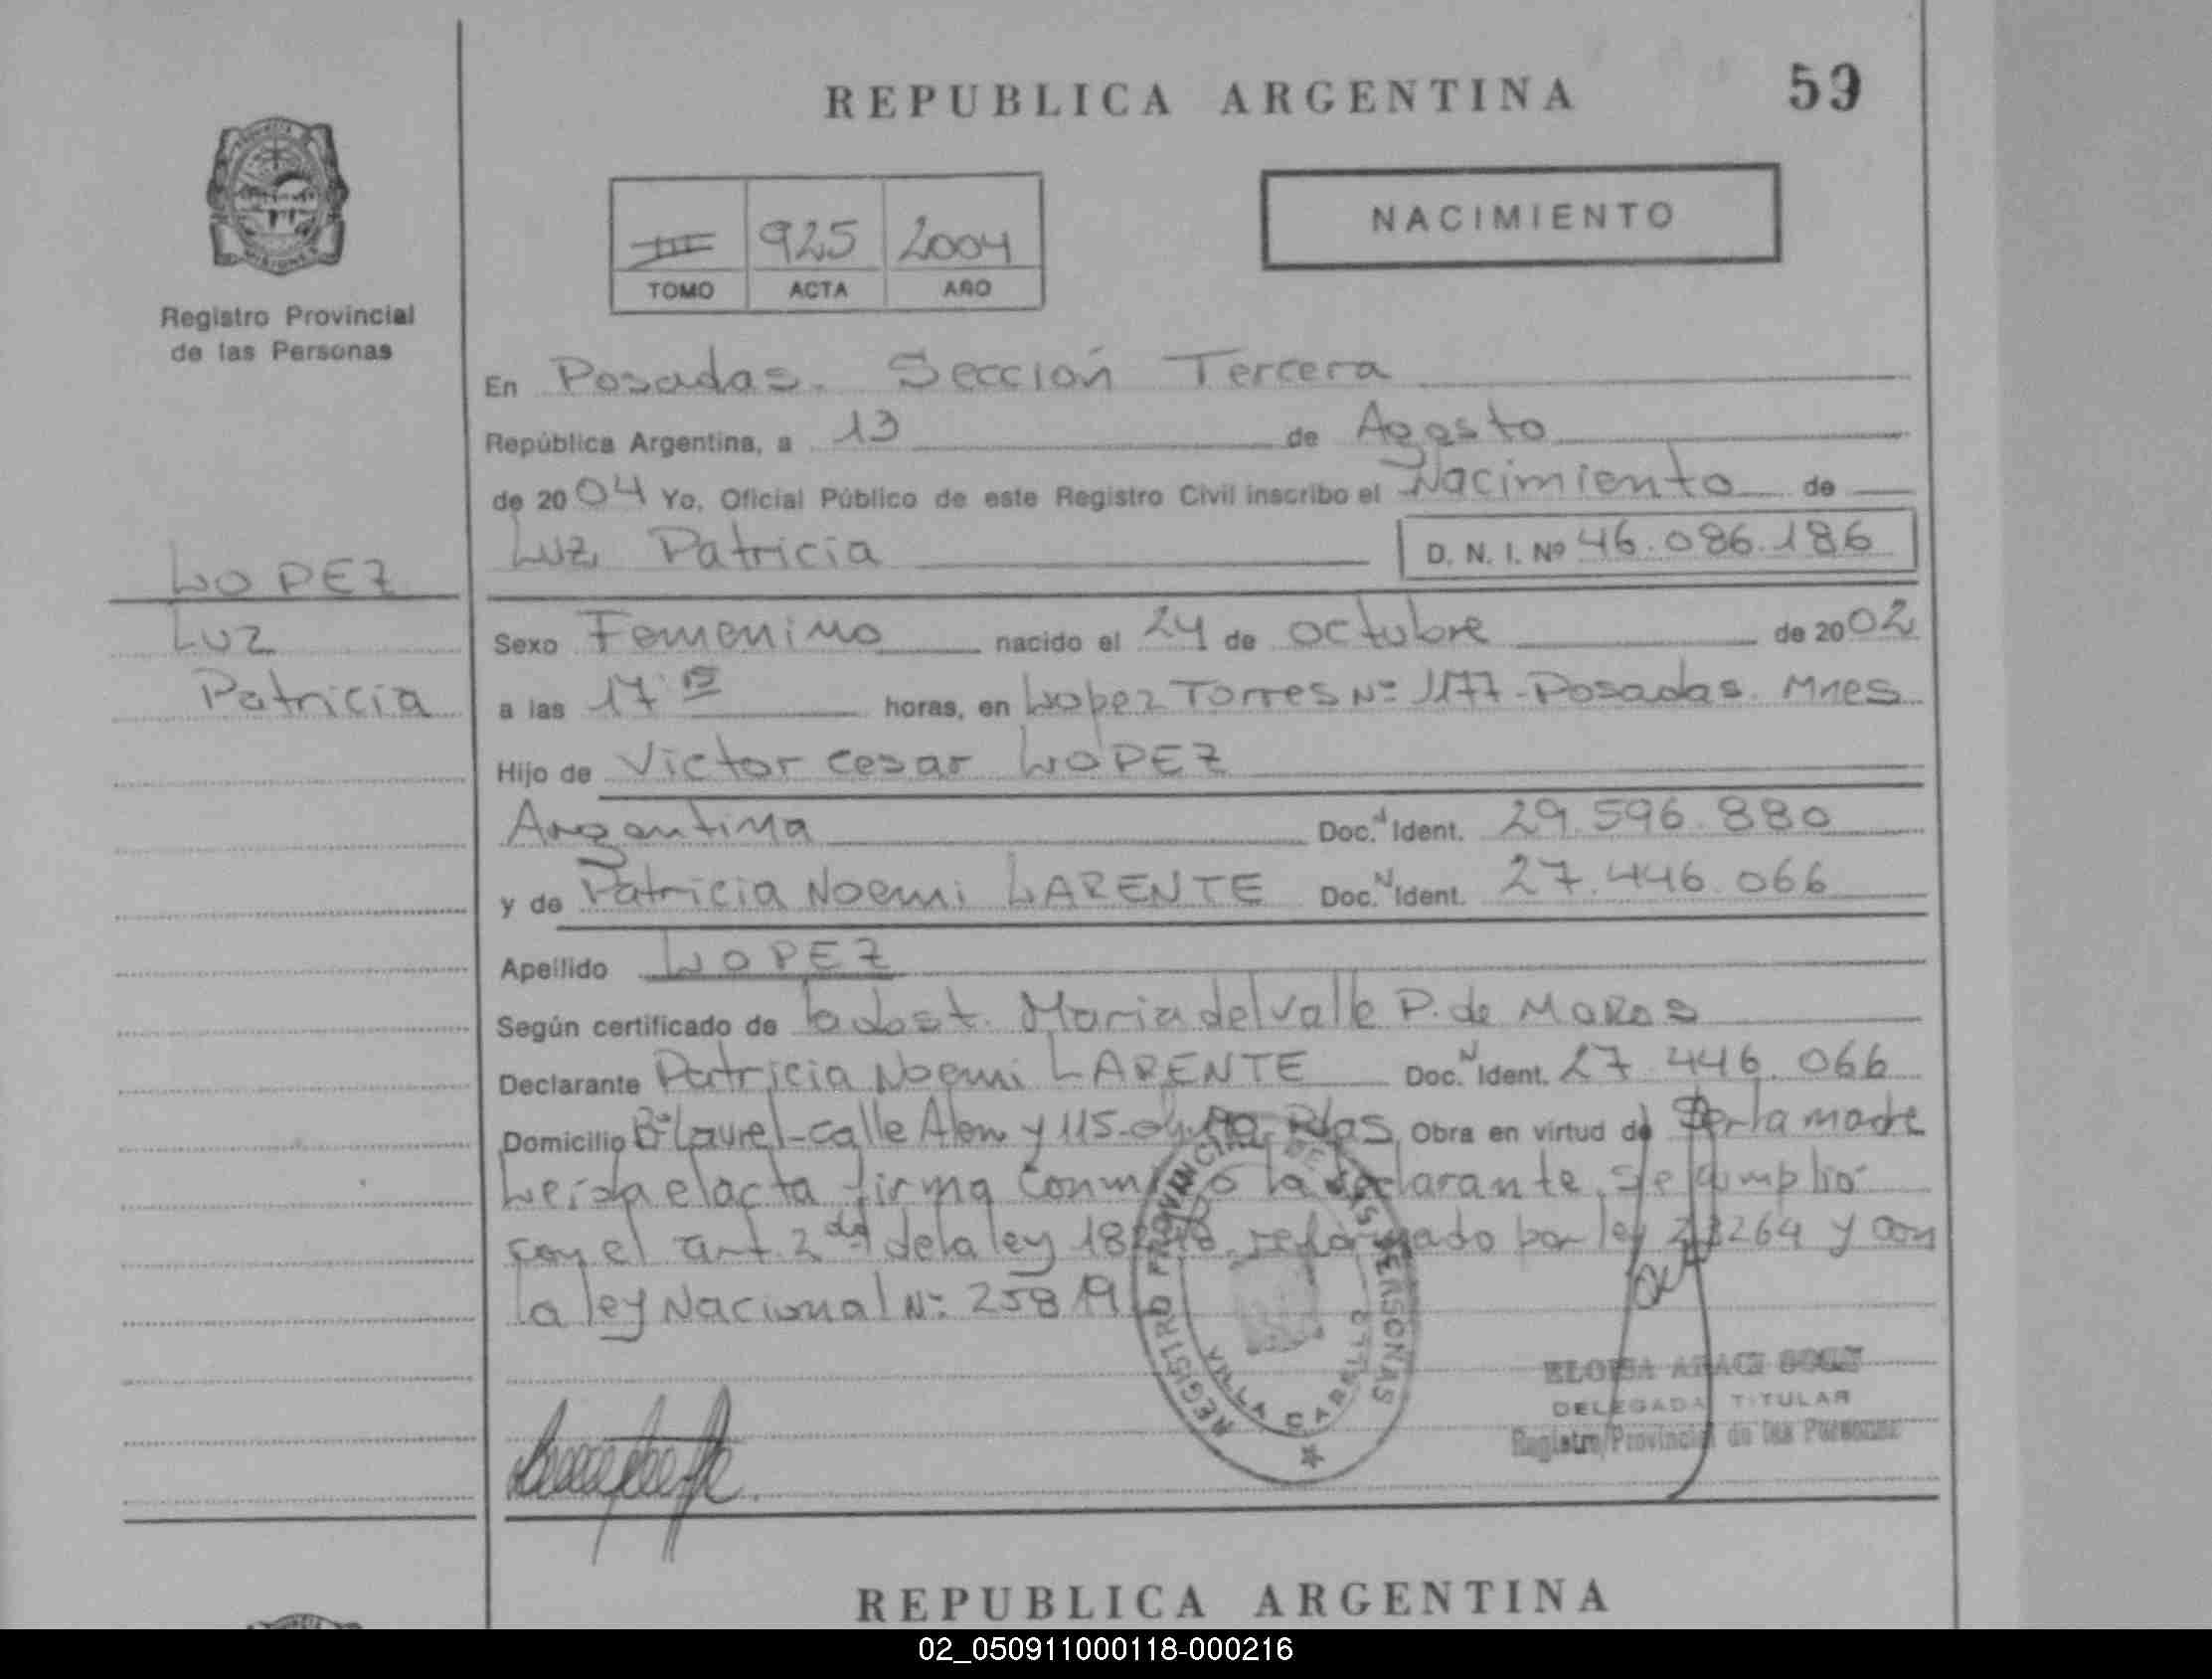 REPUBLICA ARGENTINA
59
Registro Provincial
de las Personas
III 925 2004
TOMO ACTA AÑO
NACIMIENTO
En Posadas. Sección Tercera
República Argentina, a 13 de Agosto
de 2004 Yo, Oficial Público de este Registro Civil inscribo el Nacimiento de
Luz Patricia D. N. I. Nº 46.086.186
LOPEZ
Luz
Patricia
Sexo Femenino nacido el 24 de octubre de 2002
a las 17 15 horas, en Lopez Torres Nº 1177 - Posadas. Mnes
Hijo de Victor Cesar LOPEZ
Argentina Doc. N Ident. 29.596.880
y de Patricia Noemi LARENTE Doc. N Ident. 27.446.066
Apellido LOPEZ
Según certificado de la obst. Maria del valle P. de
Declarante Patricia Noemi LARENTE Doc. N Ident. 27.446.066
Domicilio Bº Laurel - calle Alem y 115 Obra en virtud de Ser la madre
Leida el acta firma conmigo la declarante, se cumplió
con el art. 2do de la ley reformado por ley 23264 y con
la ley Nacional Nº 25819
REGISTRO PROVINCIAL DE LAS PERSONAS
VILLA CABELLO
ELOISA
DELEGADA TITULAR
Registro Provincial de las Personas
REPUBLICA ARGENTINA
02_050911000118-000216